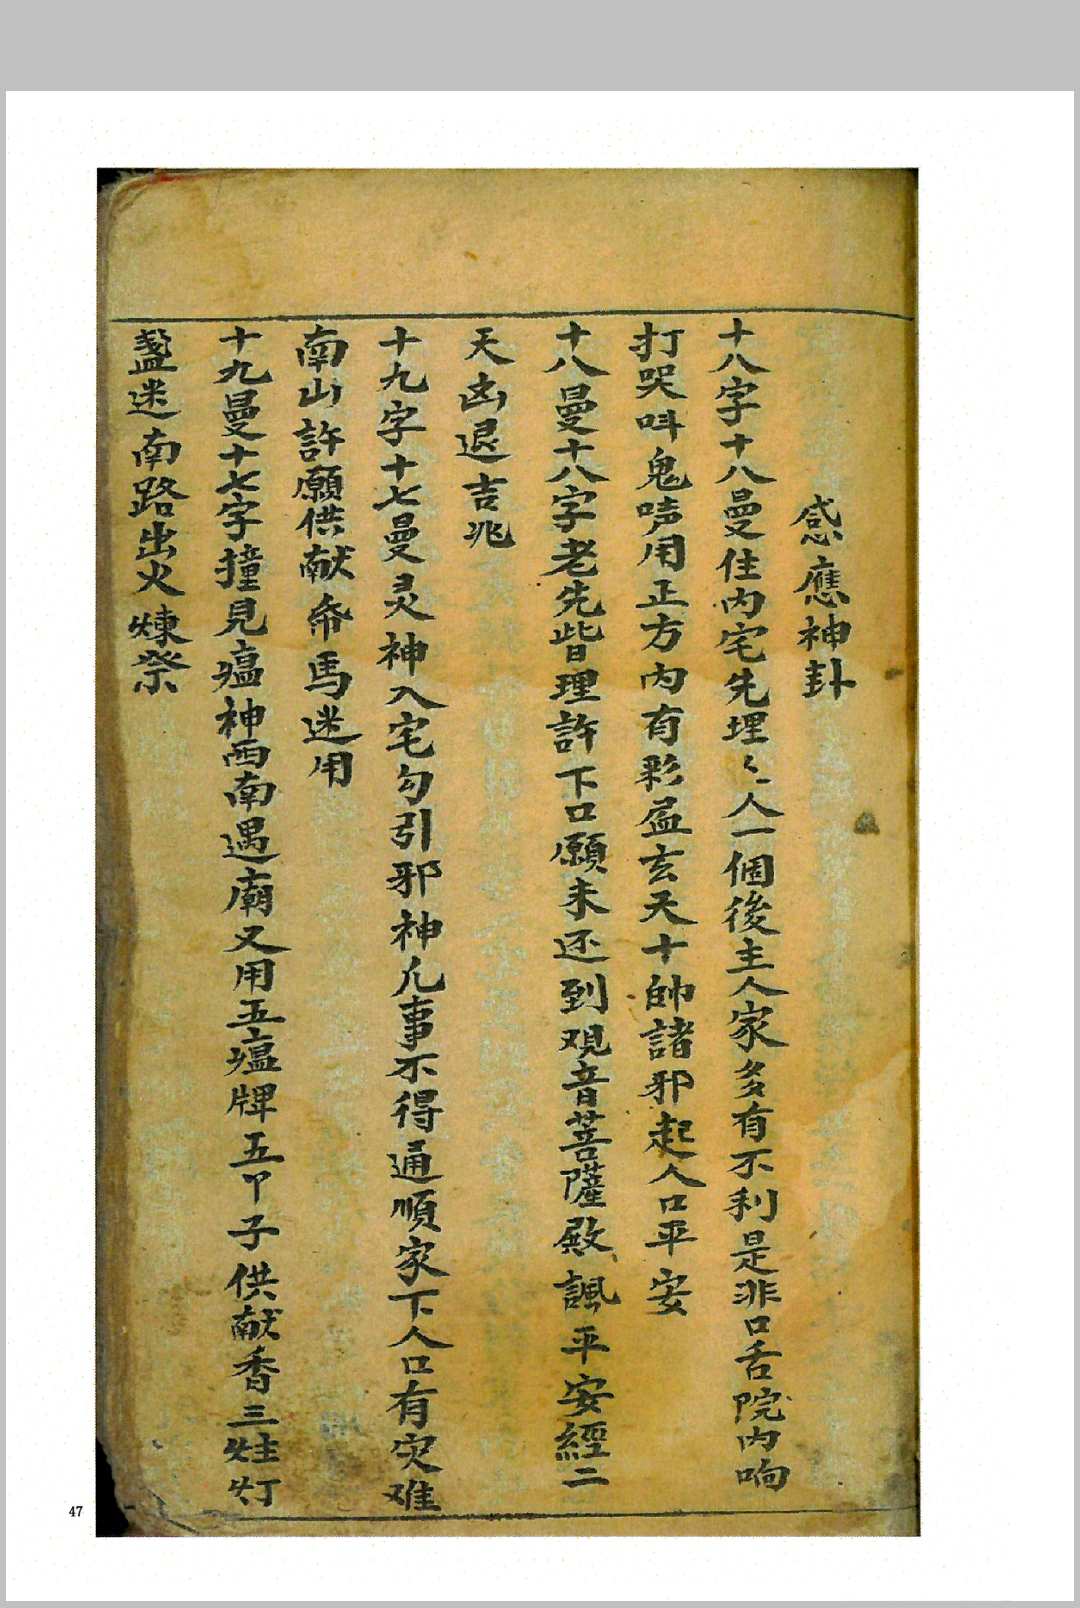 感應神卦
十八字十八曼住內宅先埋〻人一個後主人家多有不利是非口舌院內响
打哭呌鬼唠用正方內有彩盈玄天十帥諸邪起人口平安
十八曼十八字老先皆理許下口願未还到观音菩薩殿諷平安經二
天凶退吉兆
十九字十七曼灵神入宅勾引邪神凡事不得通順家下人口有灾难
南山許願供献帋馬送用
十九曼十七字撞見瘟神西南遇廟又用五瘟牌五甲子供献香三炷灯
盞送南路出火煉祭
47